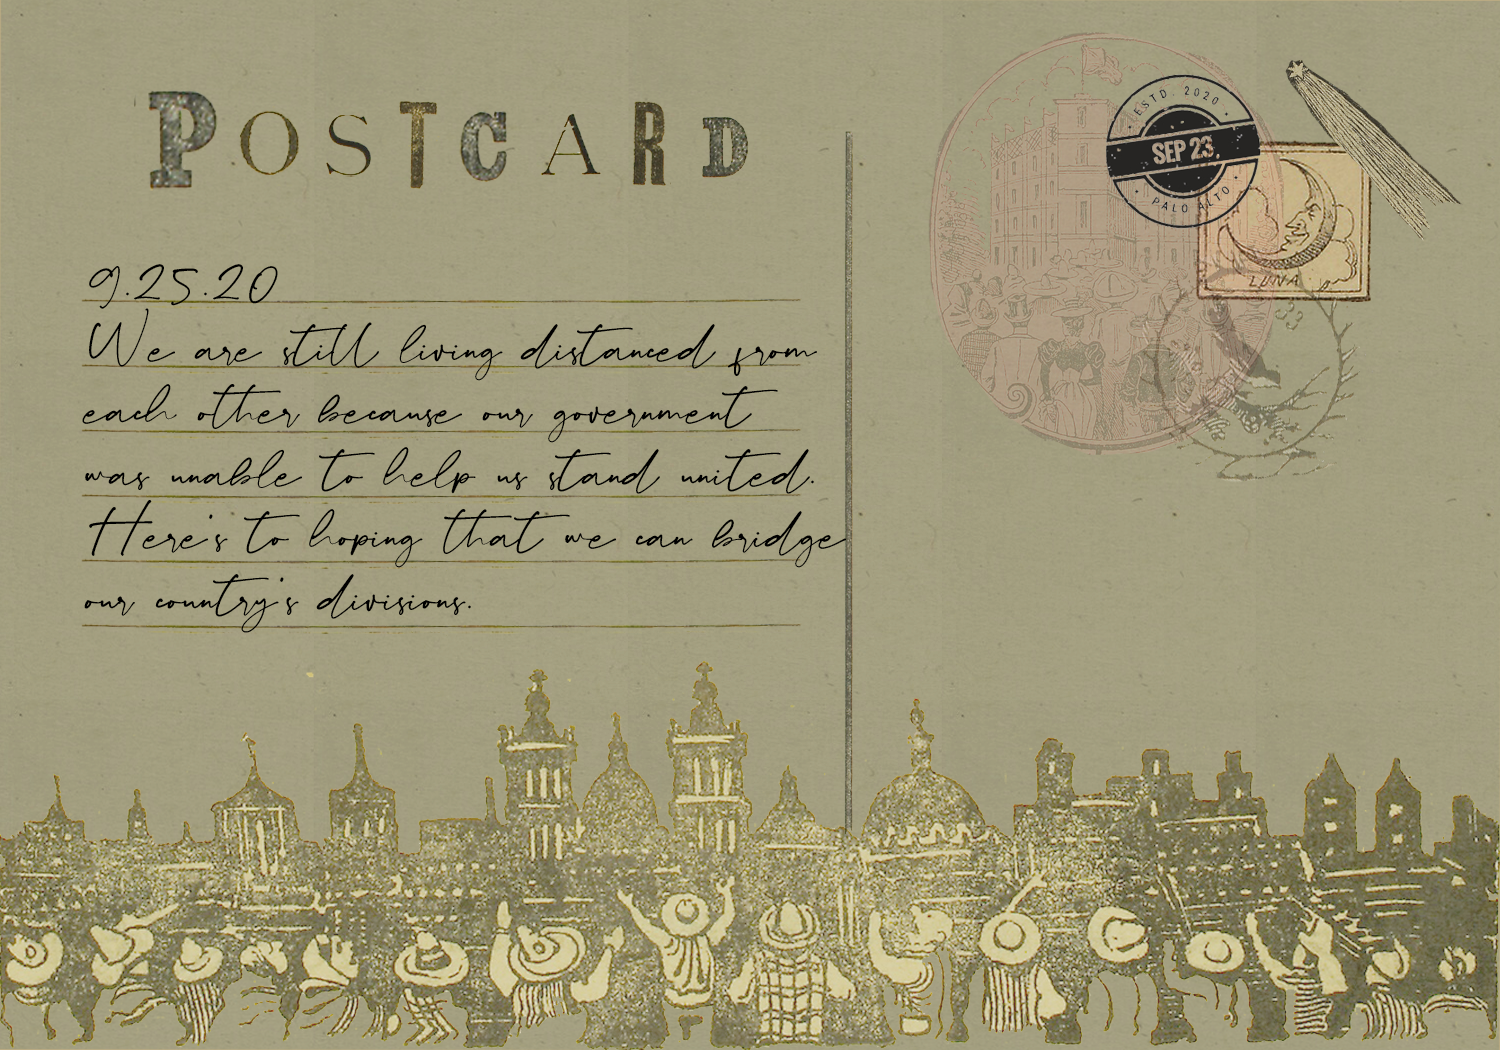 POSTCARD
ESTD. 2020
SEP 23.
PALO ALTO
LUNA
33
9.25.20
We are still living distanced from
each other because our government
was unable to help us stand united.
Here's to hoping that we can bridge
our country's divisions.